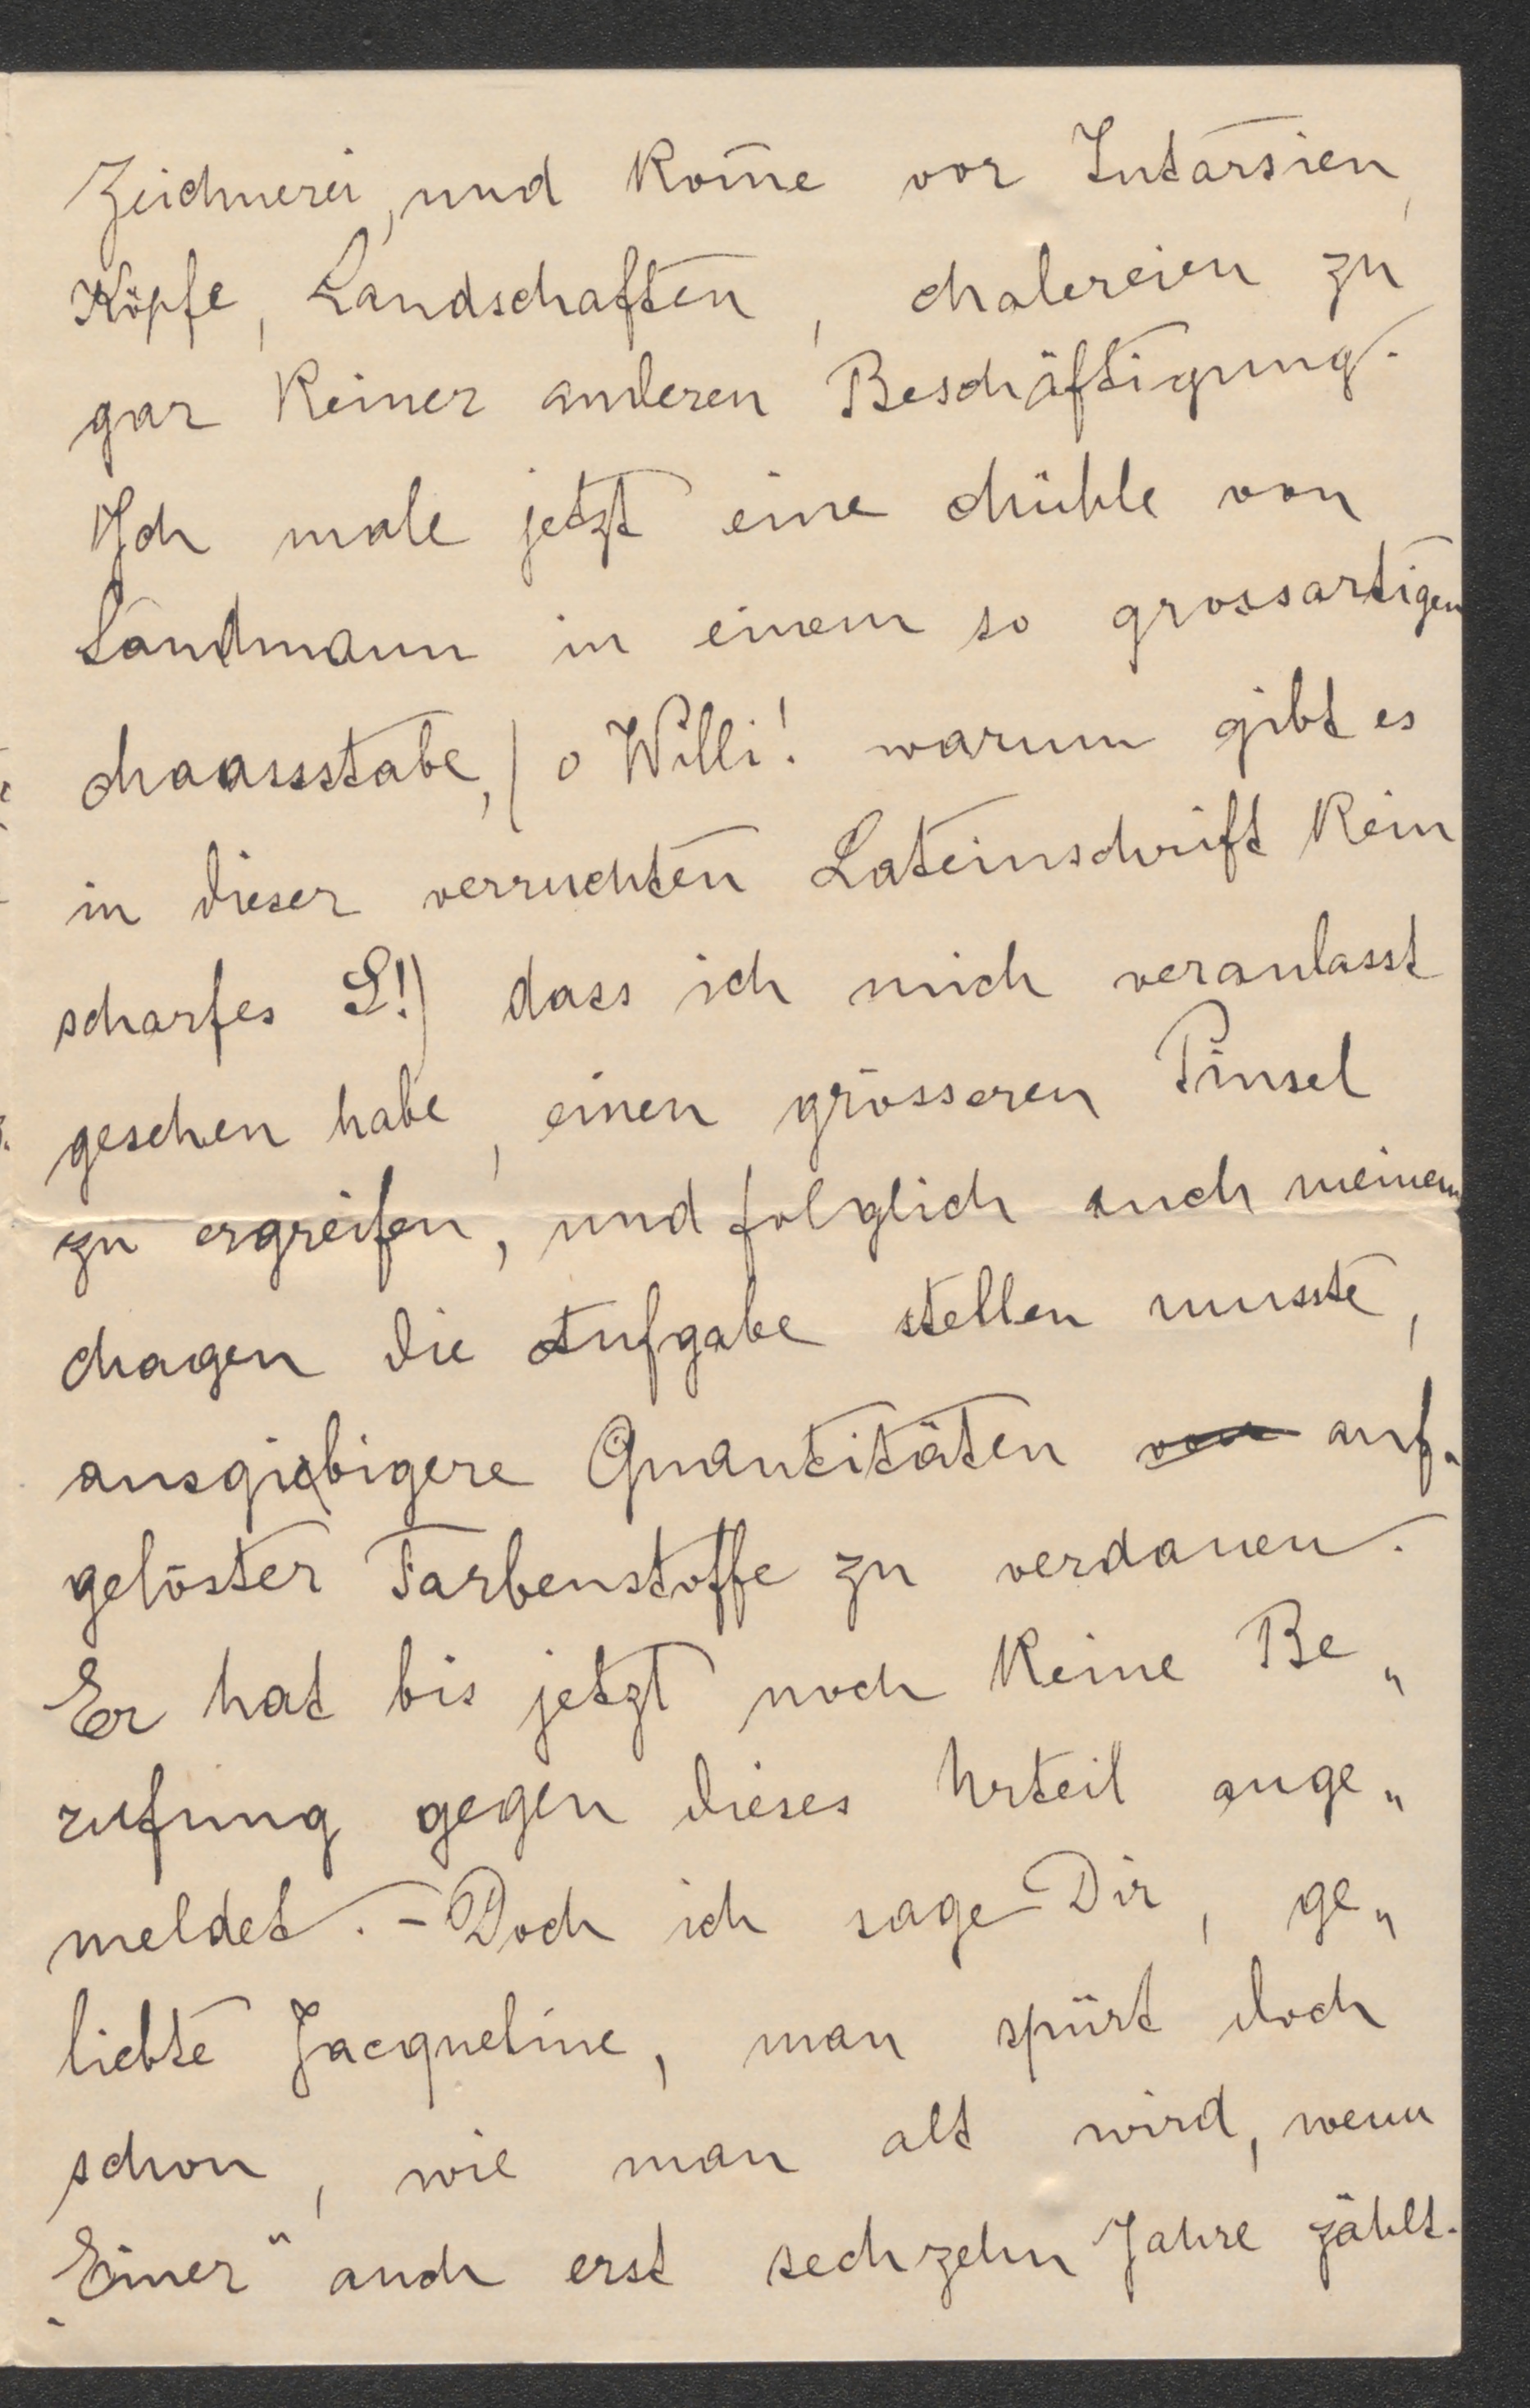 Zeichnerei, und kom̄e vor Intarsien,
Köpfe, Landschaften, Malereien zu
gar keiner anderen Beschäftigung.
Ich male jetzt eine Mühle von
Landmann in einem so grossartigen
Maassstabe, (o Willi! warum gibt es
in dieser verruchten Lateinschrift kein
scharfes S!) dass ich mich veranlasst
gesehen habe, einen grösseren Pinsel
zu ergreifen, und folglich auch meinem
Magen die Aufgabe stellen musste,
ausgiebigere Quantitäten von auf-
gelöster Farbenstoffe zu verdauen.
Er hat bis jetzt noch keine Be„
rufung gegen dieses Urteil ange„
meldet. - Doch ich sage Dir, ge„
liebte Jacqueline, man spürt doch
schon, wie man alt wird, wenn
„Einer“ auch erst sechzehn Jahre zählt.